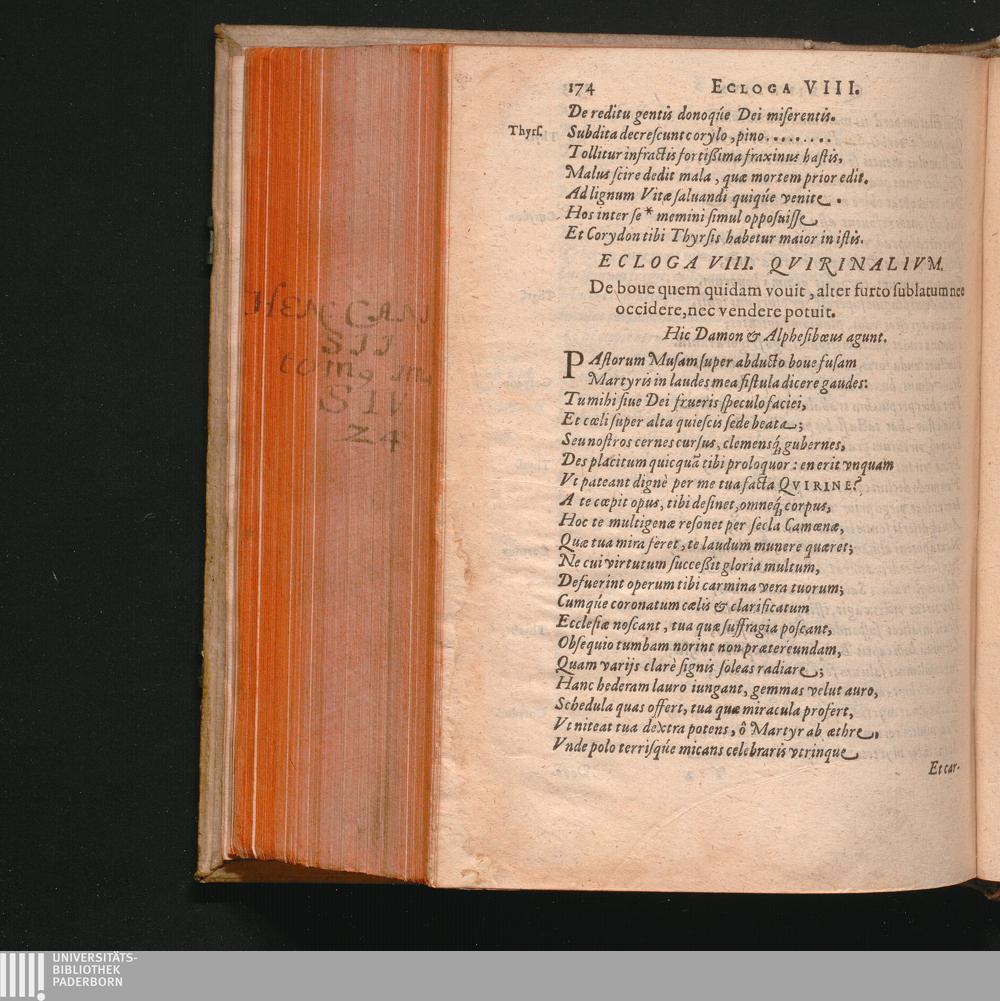 174 ECLOGA VIII.
De reditu gentis donoq́ue Dei miſerentis.
Thyrſ. Subdita decreſcunt corylo, pino.........
Tollitur infractis fortißima fraxinus haſtis,
Malus ſcire dedit mala, quæ mortem prior edit.
Ad lignum Vitæ ſaluandi quiq́ue venite.
Hos inter ſe * memini ſimul oppoſuiſſe
Et Corydon tibi Thyrſis habetur maior in iſtis.
ECLOGA VIII. QVIRINALIVM.
De boue quem quidam vouit, alter furto ſublatum nec
occidere, nec vendere potuit.
Hic Damon & Alpheſibœus agunt.
PAſtorum Muſam ſuper abducto boue fuſam
Martyris in laudes mea fiſtula dicere gaudes:
Tu mihi ſiue Dei frueris ſpeculo faciei,
Et cœli ſuper alta quieſcis ſede beata;
Seu noſtros cernes curſus, clemensq́; gubernes,
Des placitum quicquã tibi proloquor: en erit vnquam
Vt pateant dignè per me tua facta QVIRINE?
A te cœpit opus, tibi deſinet, omneq́; corpus,
Hoc te multigenæ reſonet per ſecla Camœnæ,
Quæ tua mira feret, te laudum munere quæret;
Ne cui virtutum ſucceßit gloria multum,
Defuerint operum tibi carmina vera tuorum;
Cumq́ue coronatum cælis & clarificatum
Eccleſiæ noſcant, tua quæ ſuffragia poſcant,
Obſequio tumbam norint non prætereundam,
Quam varijs clarè ſignis ſoleas radiare;
Hanc hederam lauro iungant, gemmas velut auro,
Schedula quas offert, tua quæ miracula profert,
Vt niteat tua dextra potens, ô Martyr ab æthre,
Vnde polo terriſq́ue micans celebraris vtrinque
Et car-
HEN CANI
SII
SIV
24
UNIVERSITÄTS-
BIBLIOTHEK
PADERBORN